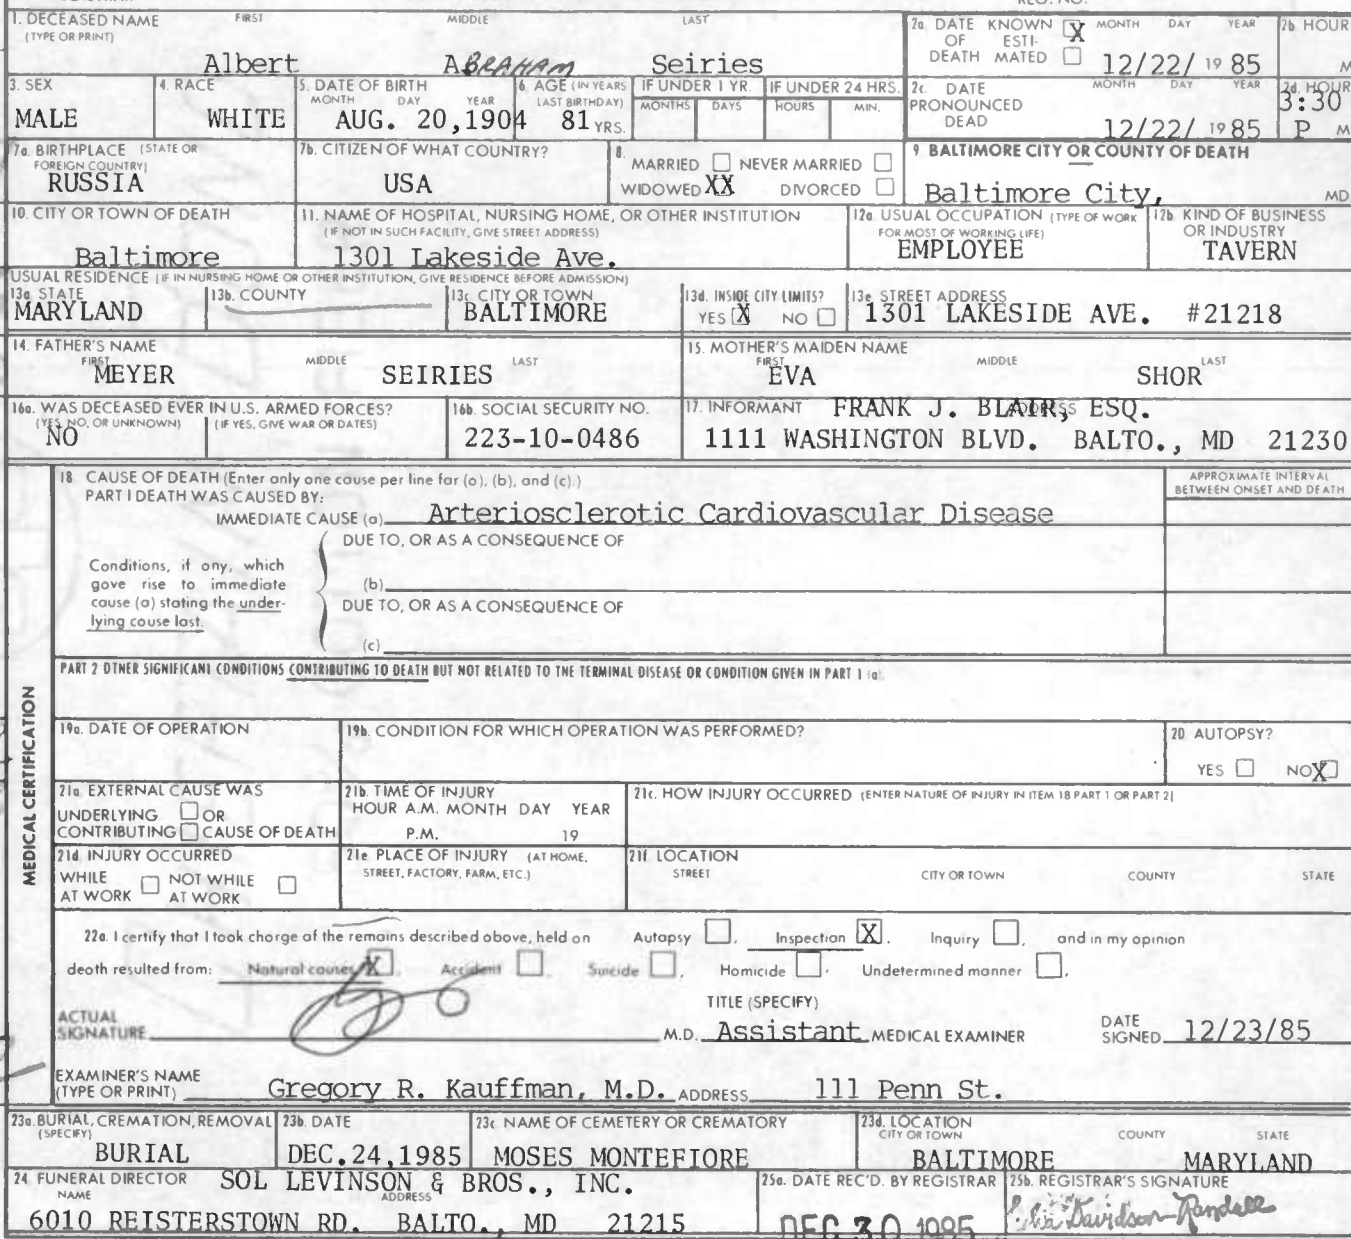 REG. NO.
1. DECEASED NAME FIRST MIDDLE LAST
(TYPE OR PRINT)
Albert ABRAHAM Seiries
2a. DATE KNOWN X MONTH DAY YEAR 2b. HOUR
OF ESTI-
DEATH MATED 12/22/ 19 85 M
3. SEX
MALE
4. RACE
WHITE
5. DATE OF BIRTH
MONTH DAY YEAR
AUG. 20,1904
6. AGE (IN YEARS
LAST BIRTHDAY)
81 YRS.
IF UNDER 1 YR.
MONTHS DAYS
IF UNDER 24 HRS.
HOURS MIN.
2c. DATE MONTH DAY YEAR
PRONOUNCED
DEAD 12/22/ 19 85
2d. HOUR
3:30
P M
7a. BIRTHPLACE (STATE OR
FOREIGN COUNTRY)
RUSSIA
7b. CITIZEN OF WHAT COUNTRY?
USA
8.
MARRIED NEVER MARRIED
WIDOWED XX DIVORCED
9 BALTIMORE CITY OR COUNTY OF DEATH
Baltimore City, MD
10. CITY OR TOWN OF DEATH
Baltimore
11. NAME OF HOSPITAL, NURSING HOME, OR OTHER INSTITUTION
(IF NOT IN SUCH FACILITY, GIVE STREET ADDRESS)
1301 Lakeside Ave.
12a USUAL OCCUPATION (TYPE OF WORK
FOR MOST OF WORKING LIFE)
EMPLOYEE
12b. KIND OF BUSINESS
OR INDUSTRY
TAVERN
USUAL RESIDENCE (IF IN NURSING HOME OR OTHER INSTITUTION, GIVE RESIDENCE BEFORE ADMISSION)
13a. STATE
MARYLAND
13b. COUNTY
13c. CITY OR TOWN
BALTIMORE
13d. INSIDE CITY LIMITS?
YES X NO
13e STREET ADDRESS
1301 LAKESIDE AVE. #21218
14. FATHER'S NAME
FIRST MIDDLE LAST
MEYER SEIRIES
15. MOTHER'S MAIDEN NAME
FIRST MIDDLE LAST
EVA SHOR
16a. WAS DECEASED EVER IN U.S. ARMED FORCES?
(YES, NO, OR UNKNOWN) (IF YES, GIVE WAR OR DATES)
NO
16b. SOCIAL SECURITY NO.
223-10-0486
17. INFORMANT ADDRESS
FRANK J. BLAIR, ESQ.
1111 WASHINGTON BLVD. BALTO., MD 21230
MEDICAL CERTIFICATION
18 CAUSE OF DEATH (Enter only one cause per line for (a), (b), and (c).)
PART I DEATH WAS CAUSED BY:
IMMEDIATE CAUSE (a) Arteriosclerotic Cardiovascular Disease
APPROXIMATE INTERVAL
BETWEEN ONSET AND DEATH
DUE TO, OR AS A CONSEQUENCE OF
Conditions, if any, which
gave rise to immediate
cause (a) stating the under-
lying cause last.
(b)
DUE TO, OR AS A CONSEQUENCE OF
(c)
PART 2 OTHER SIGNIFICANT CONDITIONS CONTRIBUTING TO DEATH BUT NOT RELATED TO THE TERMINAL DISEASE OR CONDITION GIVEN IN PART 1 (a).
19a. DATE OF OPERATION
19b. CONDITION FOR WHICH OPERATION WAS PERFORMED?
20 AUTOPSY?
YES NO X
21a EXTERNAL CAUSE WAS
UNDERLYING OR
CONTRIBUTING CAUSE OF DEATH
21b. TIME OF INJURY
HOUR A.M. MONTH DAY YEAR
P.M. 19
21c. HOW INJURY OCCURRED (ENTER NATURE OF INJURY IN ITEM 18 PART 1 OR PART 2)
21d INJURY OCCURRED
WHILE NOT WHILE
AT WORK AT WORK
21e PLACE OF INJURY (AT HOME,
STREET, FACTORY, FARM, ETC.)
21f LOCATION
STREET CITY OR TOWN COUNTY STATE
22a. I certify that I took charge of the remains described above, held on Autopsy , Inspection X , Inquiry , and in my opinion
death resulted from: Natural causes X , Accident , Suicide , Homicide , Undetermined manner ,
ACTUAL
SIGNATURE
TITLE (SPECIFY)
M.D. Assistant MEDICAL EXAMINER
DATE
SIGNED 12/23/85
EXAMINER'S NAME
(TYPE OR PRINT) Gregory R. Kauffman, M.D. ADDRESS 111 Penn St.
23a. BURIAL, CREMATION, REMOVAL
(SPECIFY)
BURIAL
23b. DATE
DEC.24,1985
23c NAME OF CEMETERY OR CREMATORY
MOSES MONTEFIORE
23d. LOCATION
CITY OR TOWN COUNTY STATE
BALTIMORE MARYLAND
24. FUNERAL DIRECTOR
NAME ADDRESS
SOL LEVINSON & BROS., INC.
6010 REISTERSTOWN RD. BALTO., MD 21215
25a. DATE REC'D. BY REGISTRAR
DEC 30 1985
25b. REGISTRAR'S SIGNATURE
Davidson-Randall